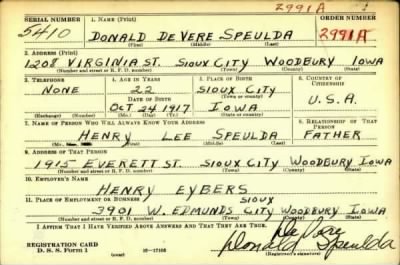 2991A
SERIAL NUMBER 1. NAME (Print) ORDER NUMBER
5410 DONALD DEVERE SPEULDA 2991A
(First) (Middle) (Last)
2. ADDRESS (Print)
1208 VIRGINIA ST. SIOUX CITY WOODBURY IOWA
(Number and street or R. F. D. number) (Town) (County) (State)
3. TELEPHONE 4. AGE IN YEARS 5. PLACE OF BIRTH 6. COUNTRY OF CITIZENSHIP
NONE 22 SIOUX CITY
DATE OF BIRTH (Town or county) U.S.A.
OCT 24 1917 IOWA
(Exchange) (Number) (Mo.) (Day) (Yr.) (State or country)
7. NAME OF PERSON WHO WILL ALWAYS KNOW YOUR ADDRESS 8. RELATIONSHIP OF THAT PERSON
HENRY LEE SPEULDA FATHER
(Mr. (First) (Middle) (Last)
9. ADDRESS OF THAT PERSON
1915 EVERETT ST. SIOUX CITY WOODBURY IOWA
(Number and street or R. F. D. number) (Town) (County) (State)
10. EMPLOYER'S NAME
HENRY EYBERS
11. PLACE OF EMPLOYMENT OR BUSINESS SIOUX
3901 W. EDMUNDS CITY WOODBURY IOWA
(Number and street or R. F. D. number) (Town) (County) (State)
I AFFIRM THAT I HAVE VERIFIED ABOVE ANSWERS AND THAT THEY ARE TRUE.
REGISTRATION CARD
D. S. S. Form 1 16—17105 Donald DeVere Speulda
(Registrant's signature)